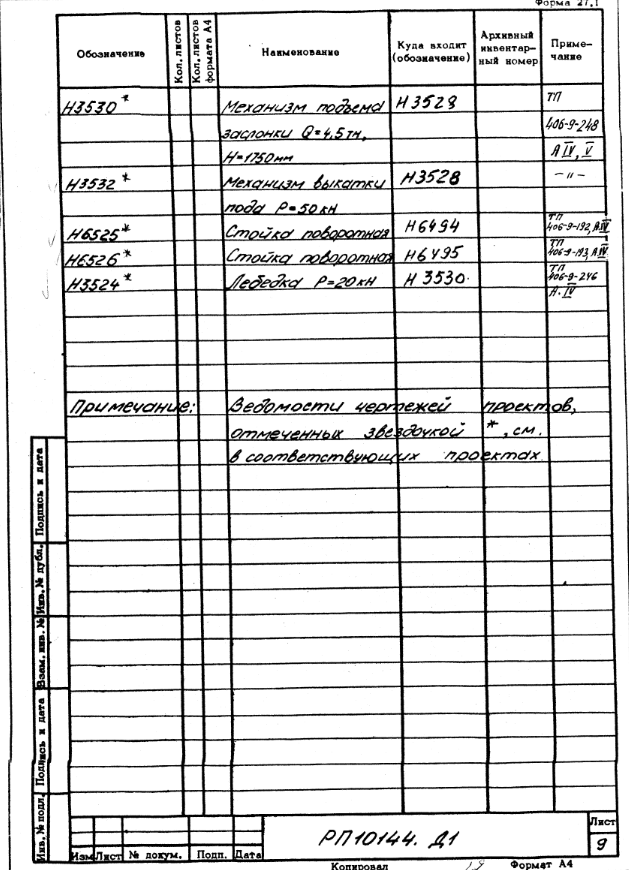 Форма 27.1
Обозначение Кол. листов Кол. листов формата А4 Наименование Куда входит (обозначение) Архивный инвентар- ный номер Приме- чание
Н3530* Механизм подъема Н3528 ТП
заслонки Q=4,5тн, 406-9-248
Н=1750мм А IV, V
Н3532* Механизм выкатки Н3528 -"-
пода Р=50кН
Н6525* Стойка поворотная Н6494 ТП 406-9-192, А.IV
Н6526* Стойка поворотная Н6495 ТП 406-9-193, А.IV
Н3524* Лебедка Р=20кН Н3530. ТП 406-9-246
А. IV
Примечание: Ведомости чертежей проектов,
отмеченных звездочкой *, см.
в соответствующих проектах
Инв. № подл. Подпись и дата Взам. инв. № Инв. № дубл. Подпись и дата
Изм Лист № докум. Подп. Дата
РП10144. Д1
Лист
9
Копировал Формат А4